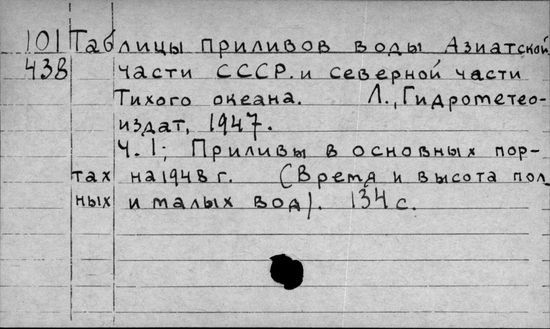 101 Таблицы приливов воды Азиатской
43В части СССР. и северной части
Тихого океана. Л., Гидрометео-
издат, 1947.
Ч.1; Приливы в основных пор-
тах на 1948 г. (Время и высота пол
ных и малых вод). 134 с.